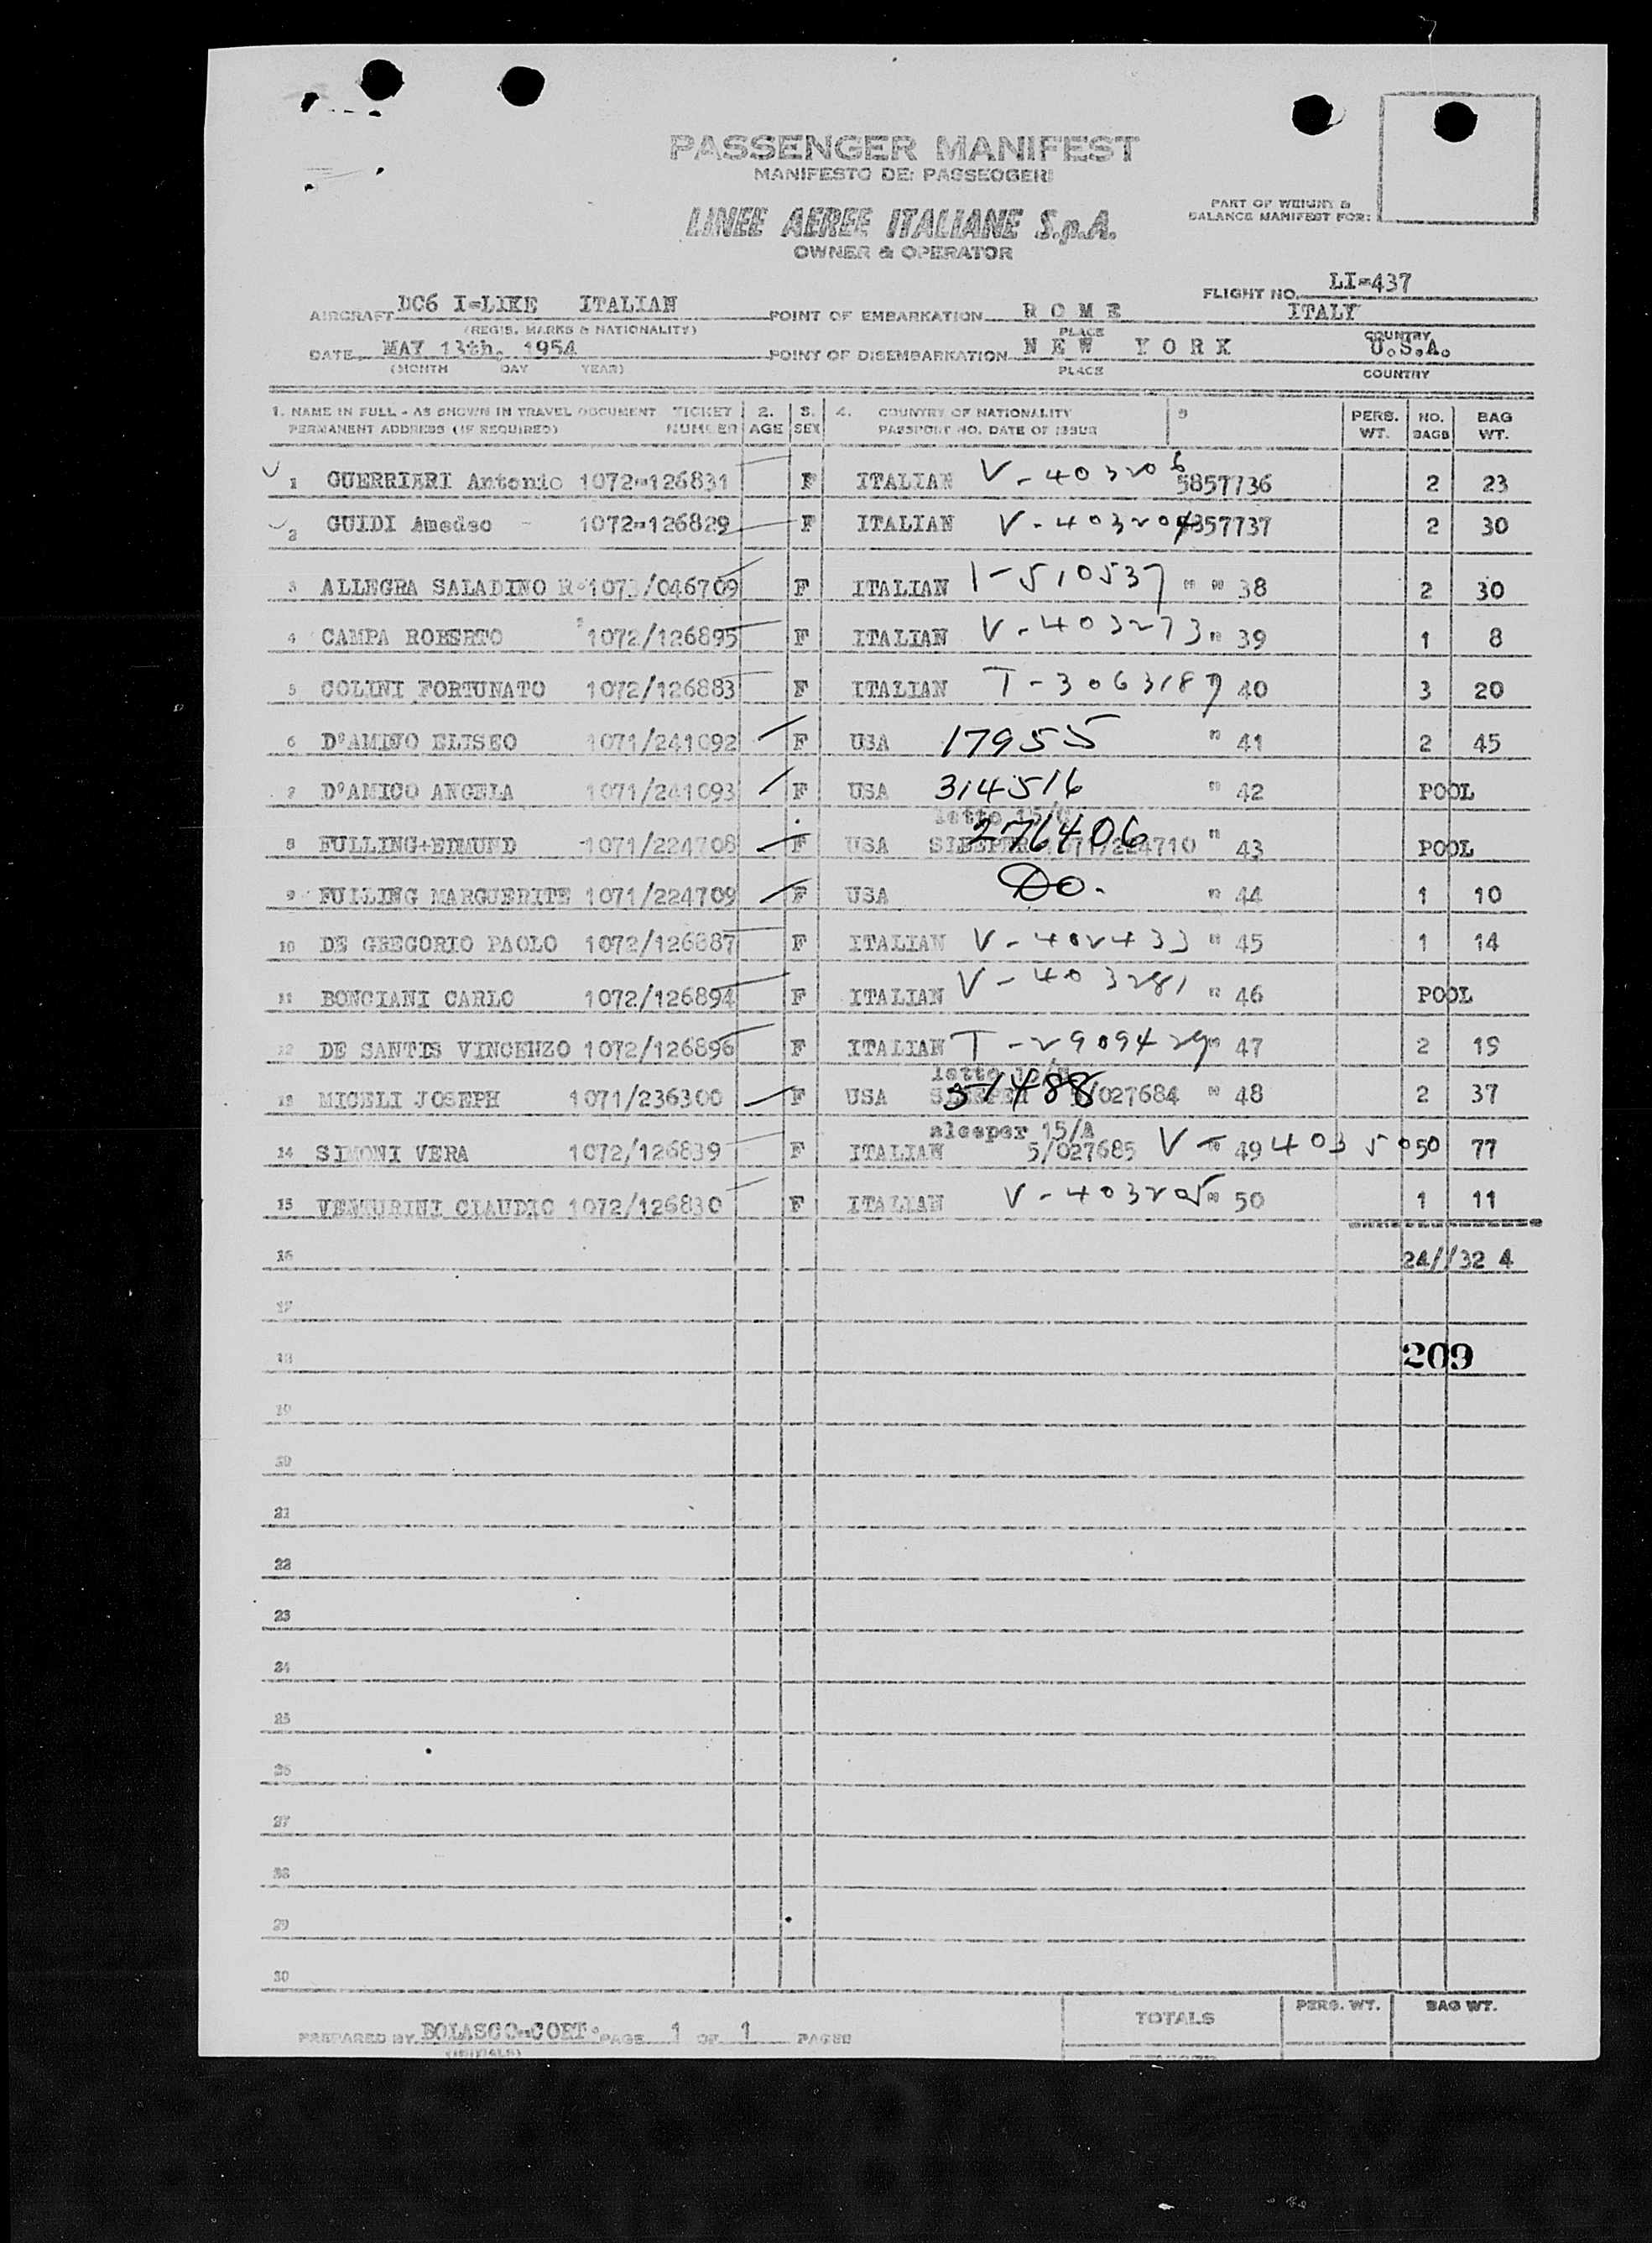 PASSENGER MANIFEST
MANIFESTO DEI PASSEGGERI
LINEE AEREE ITALIANE S.p.A.
OWNER & OPERATOR
PART OF WEIGHT &
BALANCE MANIFEST FOR:
FLIGHT NO. LI-437
AIRCRAFT DC6 I-LIKE ITALIAN POINT OF EMBARKATION ROME ITALY
(REGIS. MARKS & NATIONALITY) PLACE COUNTRY
DATE MAY 13th, 1954 POINT OF DISEMBARKATION NEW YORK U.S.A.
(MONTH DAY YEAR) PLACE COUNTRY
1. NAME IN FULL - AS SHOWN IN TRAVEL DOCUMENT TICKET 2. 3. 4. COUNTRY OF NATIONALITY 5 PERS. NO. BAG
PERMANENT ADDRESS (IF REQUIRED) NUMBER AGE SEX PASSPORT NO. DATE OF ISSUE WT. BAGS WT.
1 GUERRIERI Antonio 1072-126831 F ITALIAN V-403206 5857736 2 23
2 GUIDI Amedeo - 1072-126829 F ITALIAN V-403204 5857737 2 30
3 ALLEGRA SALADINO R 1071/046709 F ITALIAN I-510537 " " 38 2 30
4 CAMPA ROBERTO 1072/126895 F ITALIAN V-403273 " 39 1 8
5 COLINI FORTUNATO 1072/126883 F ITALIAN T-3063187 40 3 20
6 D'AMICO ELISEO 1071/241092 F USA 17955 " 41 2 45
7 D'AMICO ANGELA 1071/241093 F USA 314516 " 42 POOL
letto 15/
8 FUILLING+EDMUND 1071/224708 F USA SLEEPER 276406 1071/224710 " 43 POOL
9 FUILLING MARGUERITE 1071/224709 F USA Do. " 44 1 10
10 DE GREGORIO PAOLO 1072/126887 F ITALIAN V-402433 " 45 1 14
11 BONCIANI CARLO 1072/126894 F ITALIAN V-403281 " 46 POOL
12 DE SANTIS VINCENZO 1072/126896 F ITALIAN T-2909429 " 47 2 19
letto
13 MICELI JOSEPH 1071/236300 F USA SLEEPER 51488 /027684 " 48 2 37
sleeper 15/A
14 SIMONI VERA 1072/126839 F ITALIAN 5/027685 V-40350 " 49 50 77
15 VENTURINI CLAUDIO 1072/126830 F ITALIAN V-403205 " 50 1 11
16 24//32 4
17
18 209
19
20
21
22
23
24
25
26
27
28
29
30
TOTALS PERS. WT. BAG WT.
PREPARED BY BOLASCO-CORT. PAGE 1 OF 1 PAGES
(INITIALS)